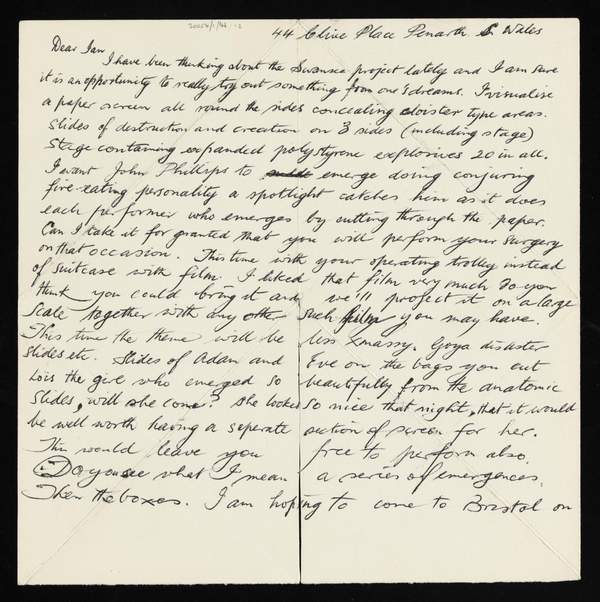 44 Clive Place Penarth S. Wales
Dear Ian
I have been thinking about the Swansea project lately and I am sure
it is an opportunity to really try out something from one's dreams. I visualise
a paper screen all round the sides concealing cloister type areas.
Slides of destruction and creation on 3 sides (including stage)
Stage containing expanded polystyrene explosives 20 in all.
I want John Phillips to emerge doing conjuring
fire-eating personality a spotlight catches him as it does
each performer who emerges by cutting through the paper.
Can I take it for granted that you will perform your surgery
on that occasion. This time with your operating trolley instead
of suitcase with film. I liked that film very much do you
think you could bring it and we'll project it on a large
scale together with any other such film you may have.
This time the theme will be less Xmassy. Goya disaster
slides etc. Slides of Adam and Eve on the bags you cut
Lois the girl who emerged so beautifully from the anatomic
slides, will she come? She looked so nice that night, that it would
be well worth having a seperate section of screen for her.
This would leave you free to perform also.
Do you see what I mean a series of emergences.
Then the boxes. I am hoping to come to Bristol on